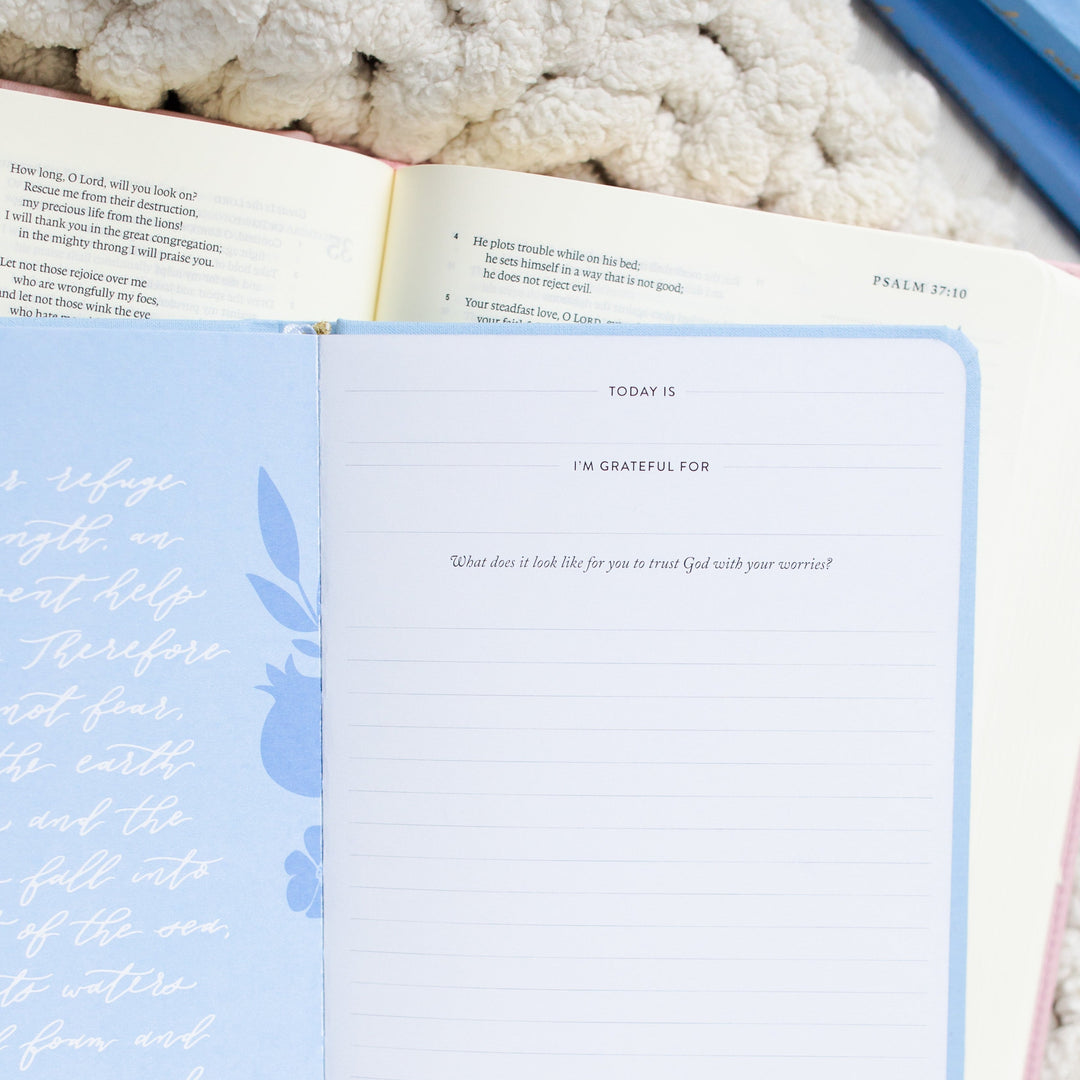 How long, O Lord, will you look on?
Rescue me from their destruction,
my precious life from the lions!
I will thank you in the great congregation;
in the mighty throng I will praise you.
Let not those rejoice over me
who are wrongfully my foes,
and let not those wink the eye
who hate
4 He plots trouble while on his bed;
he sets himself in a way that is not good;
he does not reject evil.
5 Your steadfast love, O LORD,
your
PSALM 37:10
refuge
an
help
Therefore
not fear,
the earth
and the
fall into
of the sea,
waters
foam and
TODAY IS
I'M GRATEFUL FOR
What does it look like for you to trust God with your worries?